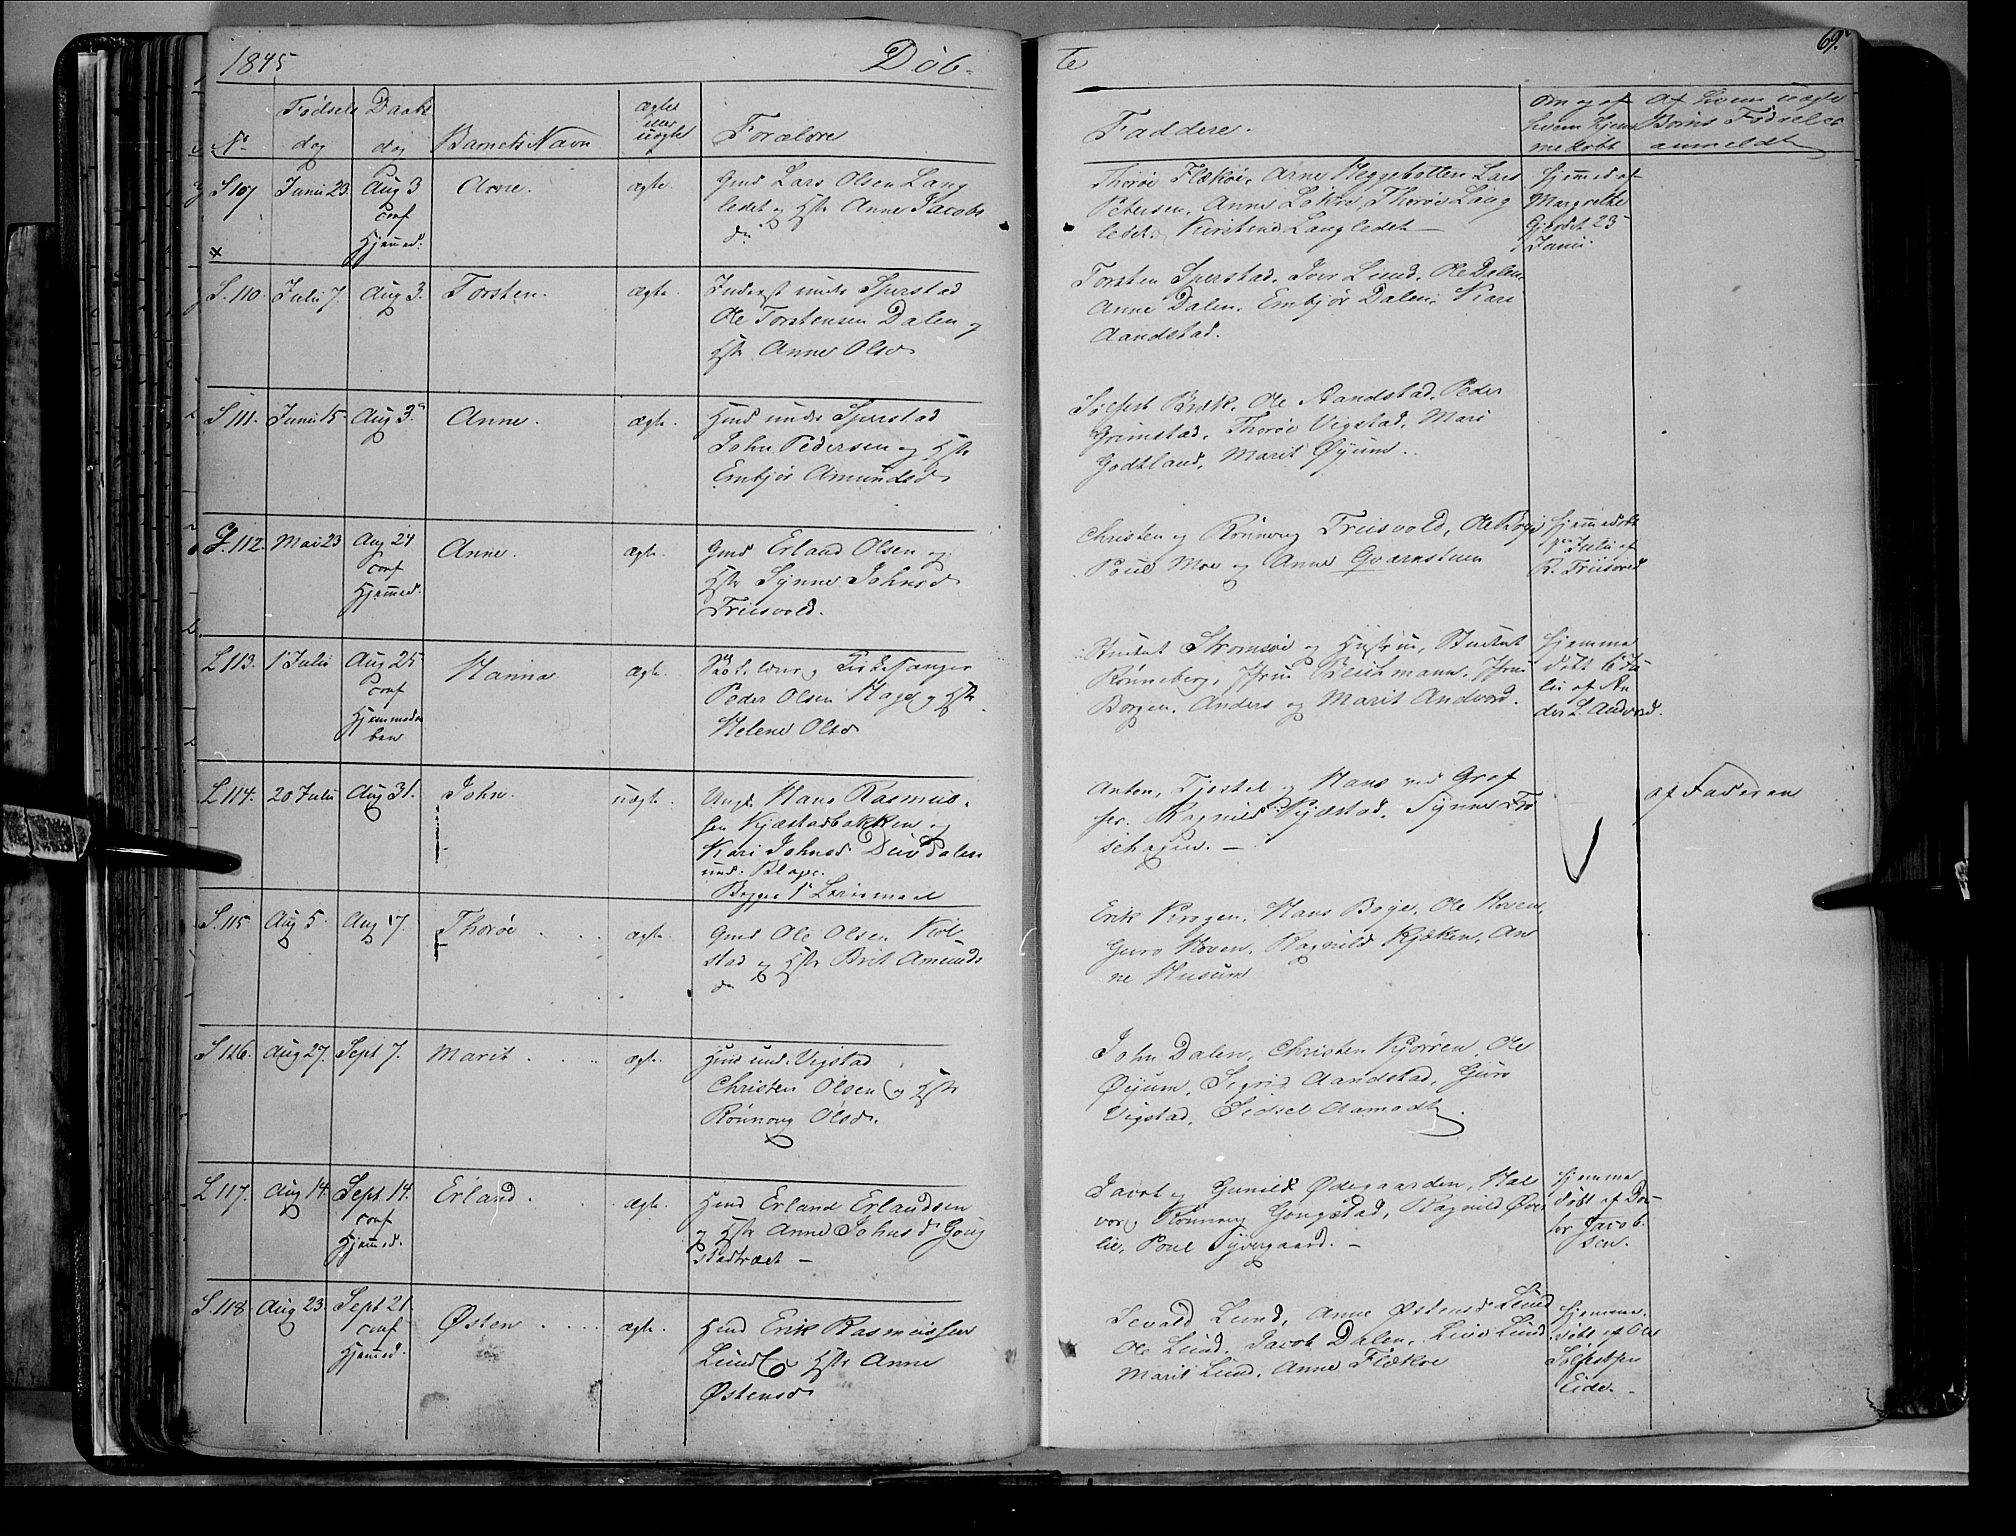 1845
Døb-
te
69.
No
Fødsels
dag
Daabs
dag
Barnets Navn
ægte
eller
uægte
Forældre
Faddere.
om og af
hvem hjem
medøbt
Af hvem uægte
Børns Fødsel er
anmeldt
S 109
Junii 23.
Aug 3
conf
Hjemmed.
Arne.
ægte
Gmd Lars Olsen Lang
ledet og Hstr Anne Jacobs
dr
Thorøe Flækøi, Arne Heggebotten Lars
Petersen, Anne Løkre, Thorøe Lang
ledet. Kirstine Langledet —
Hjemmed af
Margrethe
Gjerdet 25
Junii.
S. 110.
Julii 7.
Aug 3.
Torsten.
ægte.
Inderst under Sperstad
Ole Torstensen Dalen og
Hstr Anne Olsd
Torsten Sperstad, Iver Lund, Ole Dalen
Anne Dalen, Embjør Dalen, Kari
Aandstad.
S 111.
Junii 15
Aug 3.
Anne.
ægte.
Hmd under Sperstad
John Pedersen og Hstr
Embjør Amundsd
Sølfest Bræk, Ole Aandstad, Peder
Grimstad, Thorøe Vigstad, Mari
Godtland, Marit Øyum.
L. 112.
Mai 23
Aug 24
conf
Hjemmed.
Anne.
ægte.
Gmd Erland Olsen og
Hstr Synne Johnsd
Friisvold.
Christen og Rønnoug Friisvold, Ole Bøye
Poul Moe og Anne Qvarnstuen
Hjemmedøbt
Julii af
R. Friisvold
L 113.
1 Julii
Aug 25
conf
Hjemmedaa
ben
Hanna
ægte.
Skolelærer og Kirkesanger
Peder Olsen Hage og Hstr
Helene Olsd
Student Strømsøe og Hustrue, Student
Rønneberg, Jfru Bleichmann, Jfru
Borgen, Anders og Marit Andvord.
Hjemme
døbt 6 Ju
lii af An
ders L Andvord.
L 114.
20 Julii
Aug 31.
John.
uægte.
Ungk. Hans Rasmus-
sen Kjæstadbakken og
Kari Johnsd Diusdalen
und. Blaker.
Begges 1ste Leiermaal
Anton, Kjestel og Hans ved Graf
fer. Ragnild Kjæstad, Synne Fro
sehagen. —
af Faderen
S. 115
Aug 5.
Aug 17.
Thorøe
ægte.
Gmd Ole Olsen Kvol-
stad og Hstr Brit Amunds
dr
Erik Krogen, Hans Bøye, Ole Hoven,
Guro Hoven, Ragnild Kjæken, An
ne Husum
S 116.
Aug 27.
Sept 7.
Marit
ægte.
Hmd und. Vigstad
Christen Olsen og Hstr
Rønnoug Olsd.
John Dalen, Christen Kjørren, Ole
Øyum, Sigrid Aandstad, Guro
Vigstad, Sidsel Aamodt.
L 117.
Aug 14.
Sept 14.
conf
Hjemmed.
Erland.
ægte.
Hmd Erland Erlandsen
og Hstr Anne Johnsd Goug
stadtræet —
Jacob og Gunild Ødegaarden, Hal
vor og Rønnoug Gougstad, Ragnild Øver
lie, Poul Syvergaard. —
Hjemme
døbt af Dor
the Jacob
sen.
S. 118.
Aug 23.
Sept 21.
conf
Hjemmed.
Østen
ægte.
Hmd Erik Rasmussen
Lund og Hstr Anne
Østensd
Sevald Lund, Anne Østensd Lund
Ole Lund, Jacob Dalen, Live Lund
Marit Lund, Anne Flækøe
Hjemme-
døbt af Ole
Sølfestsen
Eide.